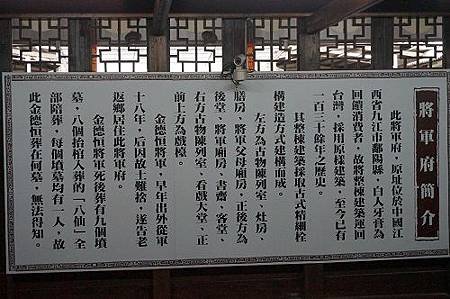 將軍府簡介
此將軍府，原址位於中國江
西省九江市鄱陽縣，白人牙膏為
回饋消費者，故將整棟建築運回
台灣，採用原樣建築，至今已有
一百三十餘年之歷史。
其整棟建築採取古式精細栓
構建造方式建構而成。
左方為古物陳列室、灶房、
膳房，將軍父母廂房，正後方為
後堂、將軍廂房、書齋、客堂、
右方古物陳列室、看戲大堂、正
前上方為戲檯。
金德恒將軍，早年出外從軍
十八年，后因故土難捨，遂告老
返鄉居住此將軍府。
金德恒將軍死後葬有九個墳
墓，八個抬棺入葬的「八仙」全
部陪葬，每個墳墓均有一人，故
此金德恒葬在何墓，無法得知。